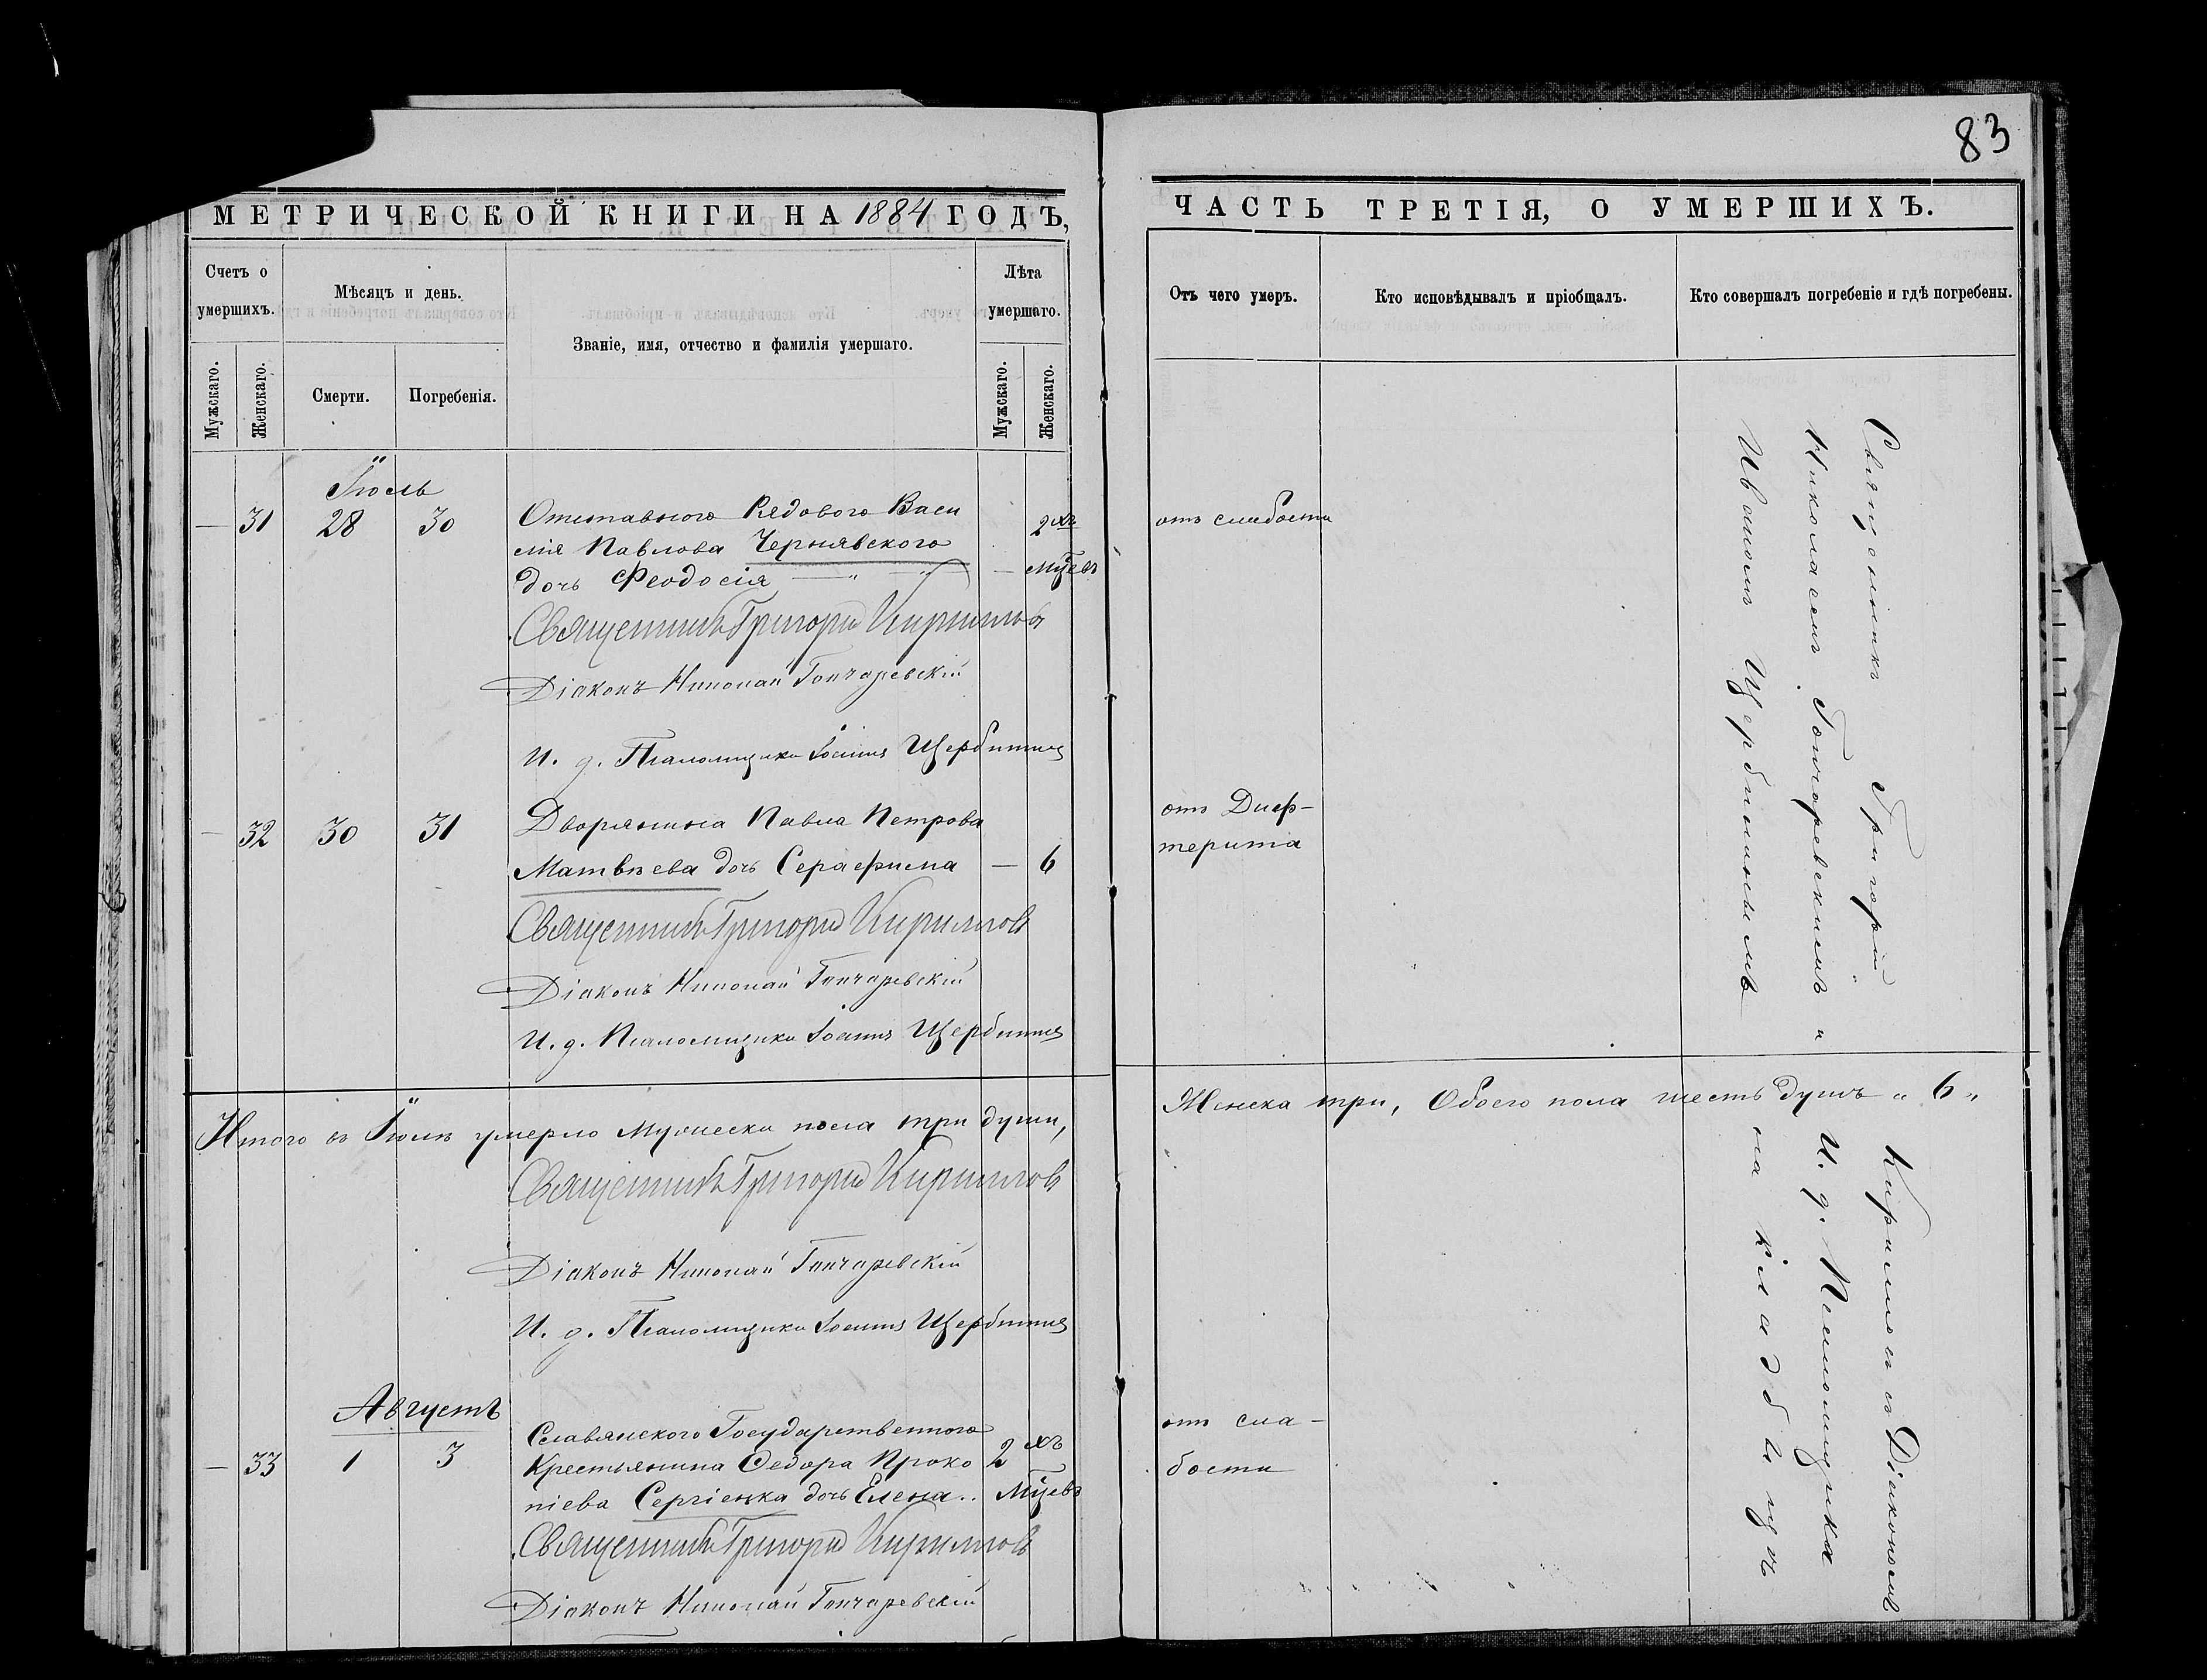 83
МЕТРИЧЕСКОЙ КНИГИ НА 1884 ГОДЪ,
Счетъ о умершихъ.
Мужскаго.
Женскаго.
Мѣсяцъ и день.
Смерти.
Погребенія.
Званіе, имя, отчество и фамилія умершаго.
Лѣта умершаго.
Мужскаго.
Женскаго.
Іюль
— 31 28 30 Отставного Рядового Васи 2 хъ
лія Павлова Чернявского
дочь Феодосія — „ — „ — мцевъ
Священникъ Григорій Кирилловъ
Діаконъ Николай Гончаревскій
И. д. Псаломщика Іоаннъ Щербининъ
— 32 30 31 Дворянина Павла Петрова
Матвѣева дочь Серафима — 6
Священникъ Григорій Кирилловъ
Діаконъ Николай Гончаревскій
И. д. Псаломщика Іоаннъ Щербининъ
Итого въ Іюлѣ умерло Мужеска пола три души,
Священникъ Григорій Кирилловъ
Діаконъ Николай Гончаревскій
И. д. Псаломщика Іоаннъ Щербининъ
Августъ
— 33 1 3 Славянского Государственного
Крестьянина Федора Проко 2 хъ
піева Сергіенка дочь Елена.. Мцевъ
Священникъ Григорій Кирилловъ
Діаконъ Николай Гончаревскій
ЧАСТЬ ТРЕТІЯ, О УМЕРШИХЪ.
Отъ чего умеръ.
Кто исповѣдывалъ и пріобщалъ.
Кто совершалъ погребеніе и гдѣ погребены.
отъ слабости
отъ Диф-
терита
Женска три, Обоего пола шесть душъ „ 6 „
отъ сла-
бости
Священникъ Григорій Кирилловъ съ Діакономъ
Николаемъ Гончаревскимъ и И. д. Псаломщика
Иваномъ Щербининымъ на кладбищѣ